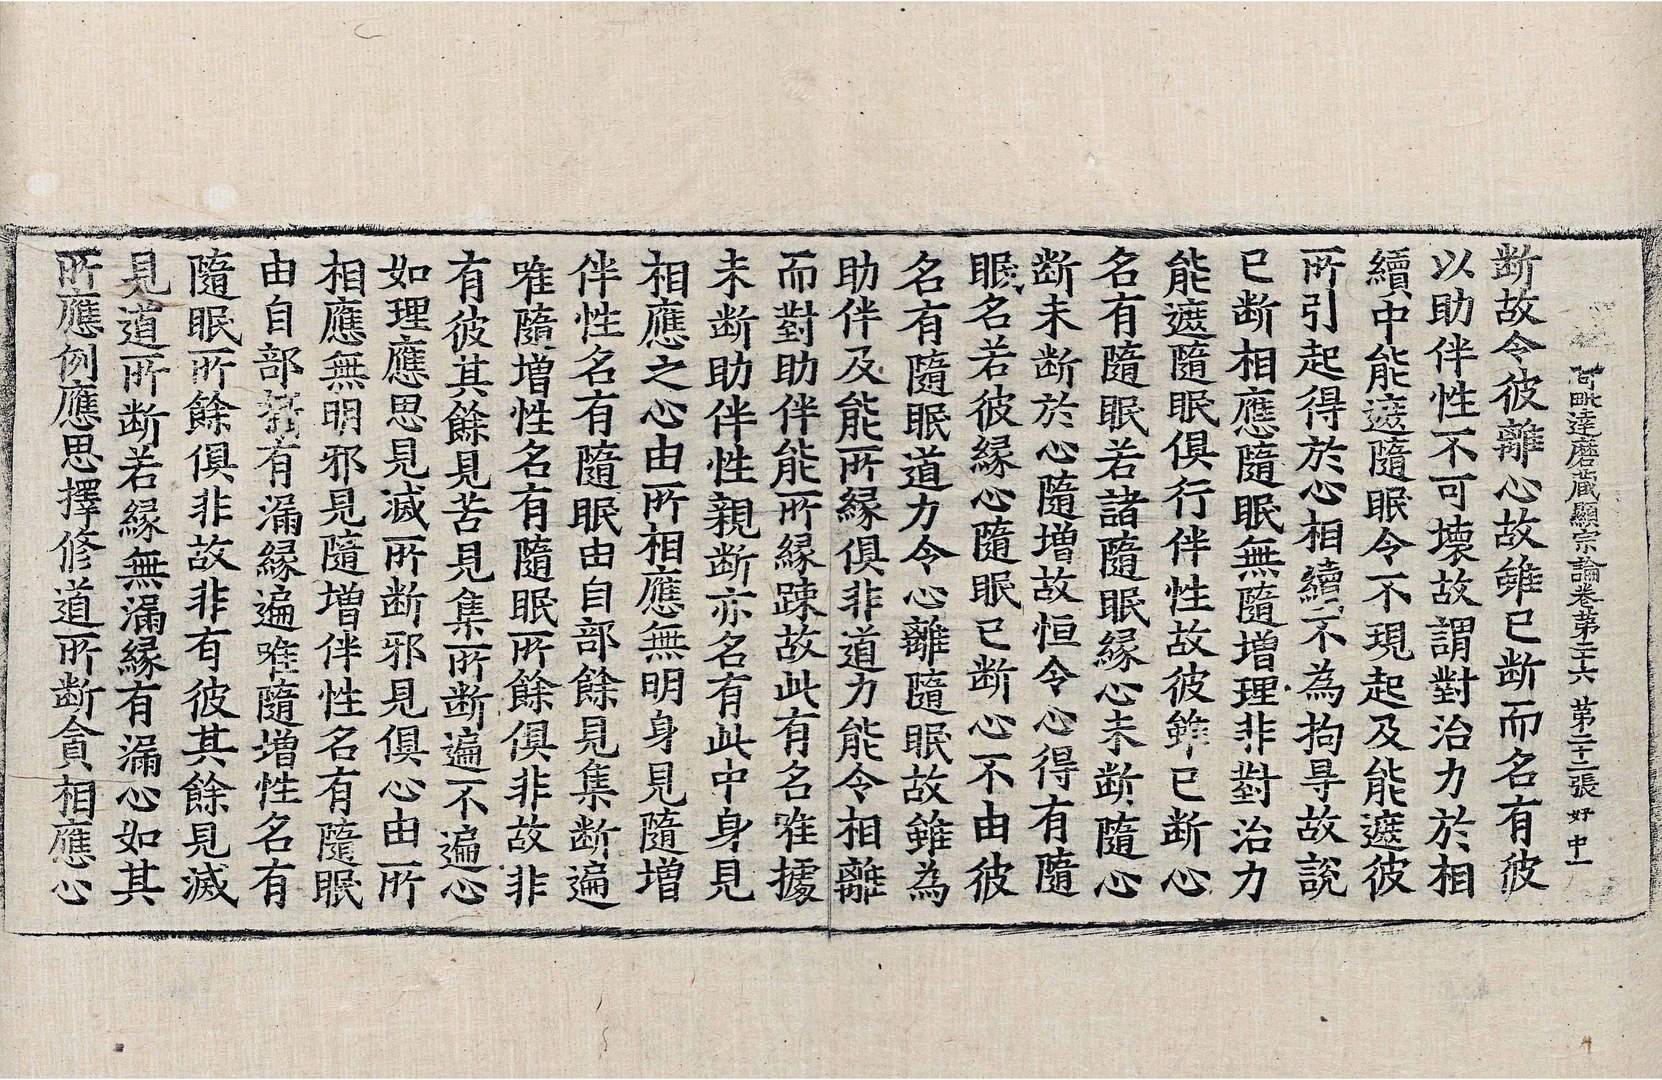 阿毗達磨藏顯宗論卷第二十六 第二十二張 好 中一
断故令彼離心故雖已断而名有彼
以助伴性不可壞故謂對治力於相
續中能遮隨眠令不現起及能遮彼
所引起得於心相續不為拘㝵故說
已断相應隨眠無隨增理非對治力
能遮隨眠俱行伴性故彼雖已断心
名有隨眠若諸隨眠緣心未断隨心
断未断於心隨增故恒令心得有隨
眠名若彼緣心隨眠已断心不由彼
名有隨眠道力令心離隨眠故雖為
助伴及能所緣俱非道力能令相離
而對助伴能所緣踈故此有名唯據
未断助伴性親断亦名有此中身見
相應之心由所相應無明身見隨增
伴性名有隨眠由自部餘見集断遍
唯隨增性名有隨眠所餘俱非故非
有彼其餘見苦見集所断遍不遍心
如理應思見滅所断邪見俱心由所
相應無明邪見隨增伴性名有隨眠
由自部有漏緣遍唯隨增性名有
隨眠所餘俱非故非有彼其餘見滅
見道所断若緣無漏緣有漏心如其
所應例應思擇修道所断貪相應心